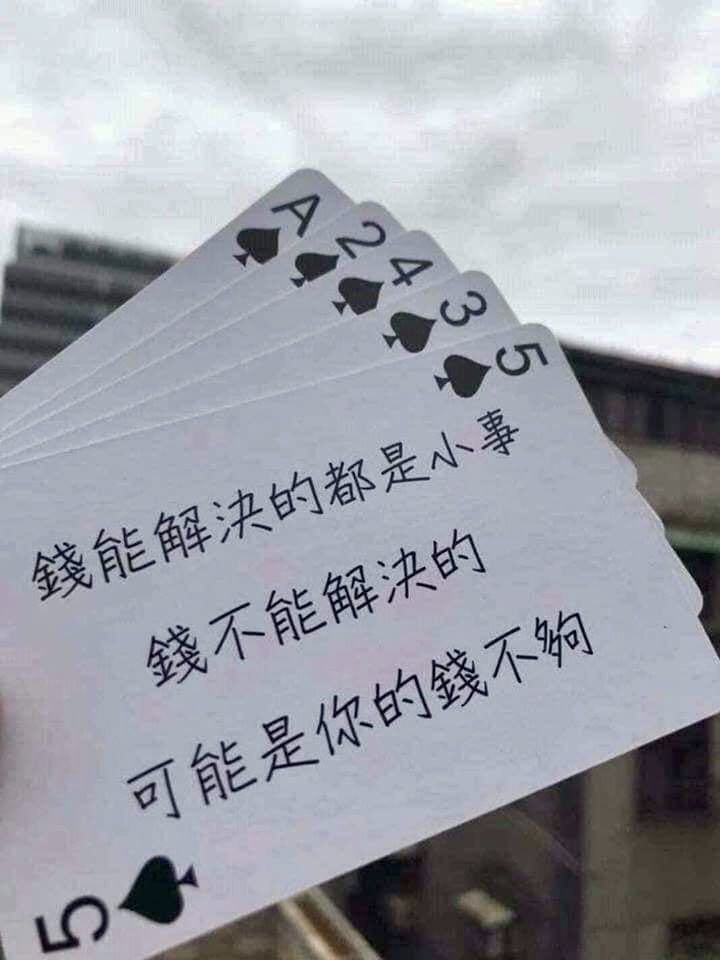 A
2
4
3
5
錢能解決的都是小事
錢不能解決的
可能是你的錢不夠
5